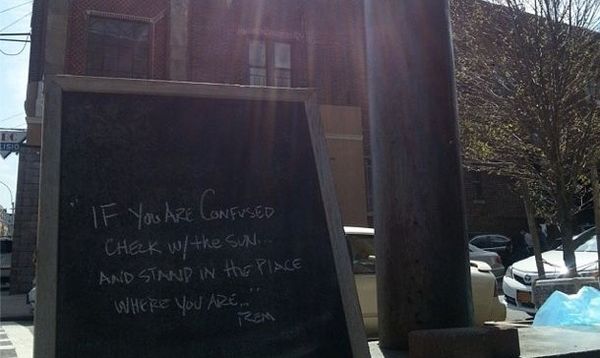 "IF YOU ARE CONFUSED
CHECK W/ THE SUN...
AND STAND IN THE PLACE
WHERE YOU ARE..."
REM
LISIO